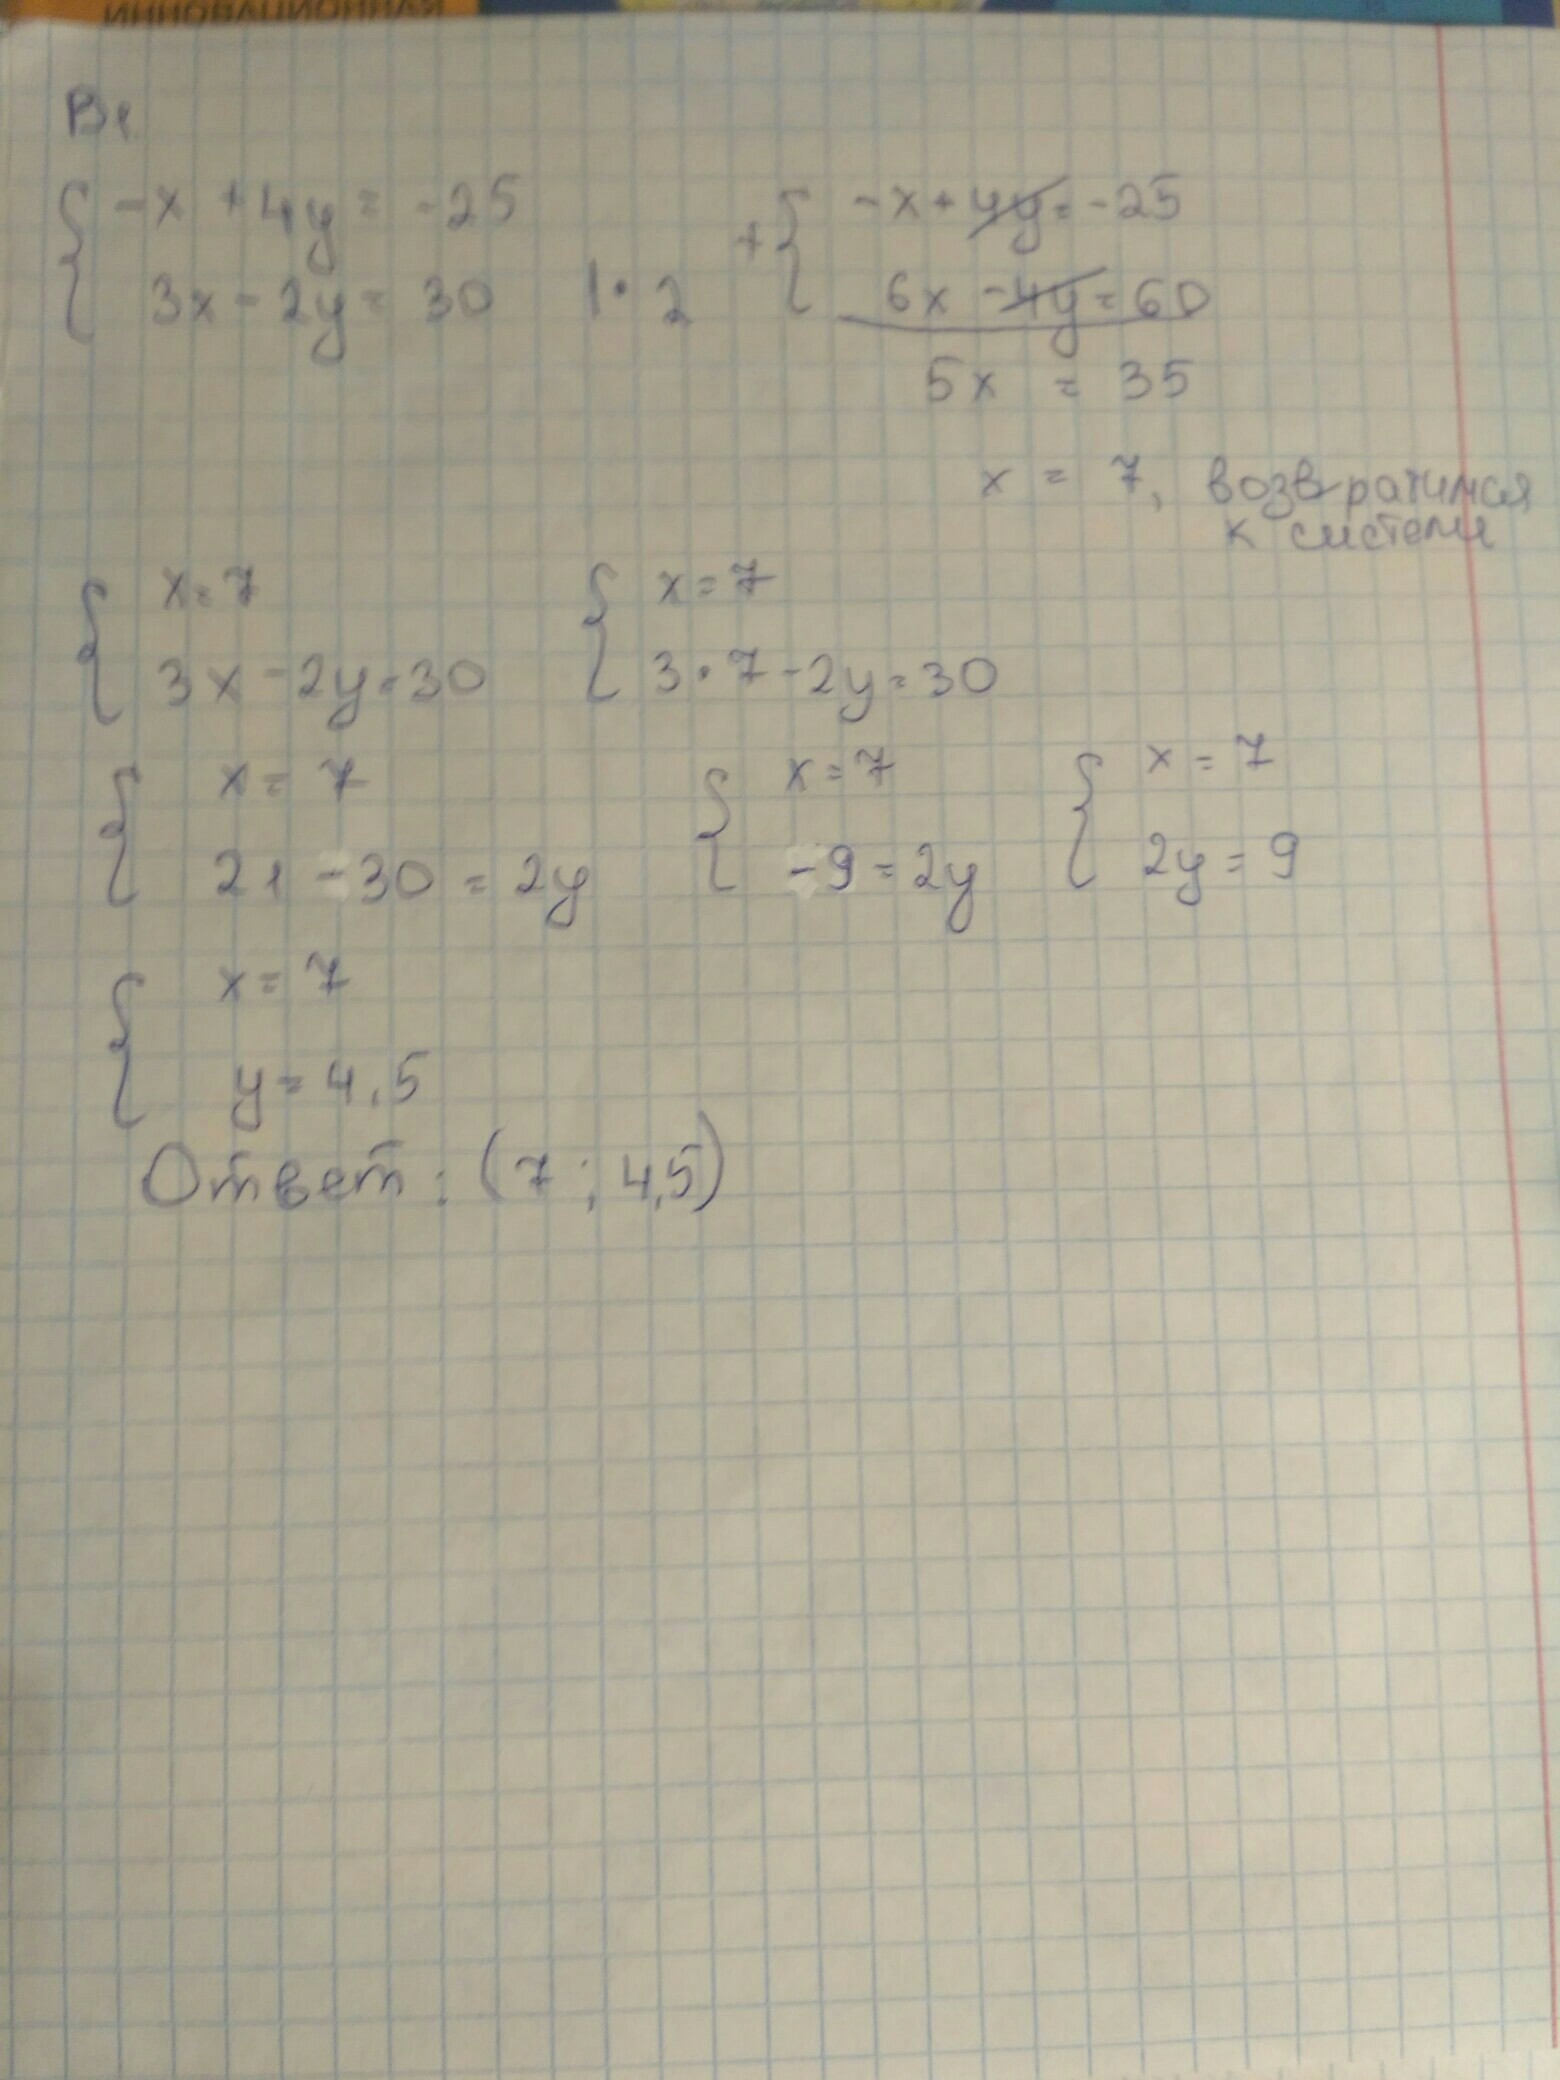 ИННОВАЦИОННАЯ
В1
-x + 4y = -25
3x - 2y = 30 | · 2
+ -x + 4y = -25
6x - 4y = 60
5x = 35
x = 7, возвратимся
к системе
x = 7
3x - 2y = 30
x = 7
3 · 7 - 2y = 30
x = 7
21 - 30 = 2y
x = 7
-9 = 2y
x = 7
2y = 9
x = 7
y = 4,5
Ответ: (7 ; 4,5)